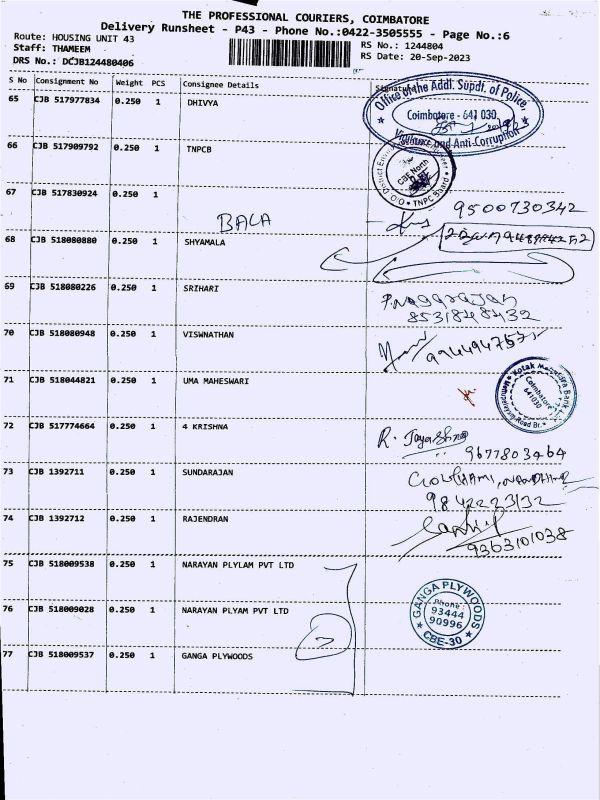 THE PROFESSIONAL COURIERS, COIMBATORE
Delivery Runsheet - P43 - Phone No.:0422-3505555 - Page No.:6
Route: HOUSING UNIT 43
Staff: THAMEEM
RS No.: 1244804
DRS No.: DCJB124480406
RS Date: 20-Sep-2023
S No Consignment No Weight PCS Consignee Details Signature
65 CJB 517977834 0.250 1 DHIVYA
Office of the Addl. Supdt. of Police,
Coimbatore - 641 030
Vigilance and Anti-Corruption
66 CJB 517909792 0.250 1 TNPCB
Cbe North
TNPC Board
67 CJB 517830924 0.250 1
BALA
9500730342
68 CJB 518080880 0.250 1 SHYAMALA
69 CJB 518080226 0.250 1 SRIHARI
P.Nagarajan
8531848432
70 CJB 518080948 0.250 1 VISWNATHAN
71 CJB 518044821 0.250 1 UMA MAHESWARI
Kotak Mahindra Bank
Coimbatore
641030
Road Br.
72 CJB 517774664 0.250 1 4 KRISHNA
R.
9677803464
73 CJB 1392711 0.250 1 SUNDARAJAN
9842223132
74 CJB 1392712 0.250 1 RAJENDRAN
9363101038
75 CJB 518009538 0.250 1 NARAYAN PLYLAM PVT LTD
76 CJB 518009028 0.250 1 NARAYAN PLYAM PVT LTD
GANGA PLYWOODS
Phone :
93444
90996
CBE-30
77 CJB 518009537 0.250 1 GANGA PLYWOODS